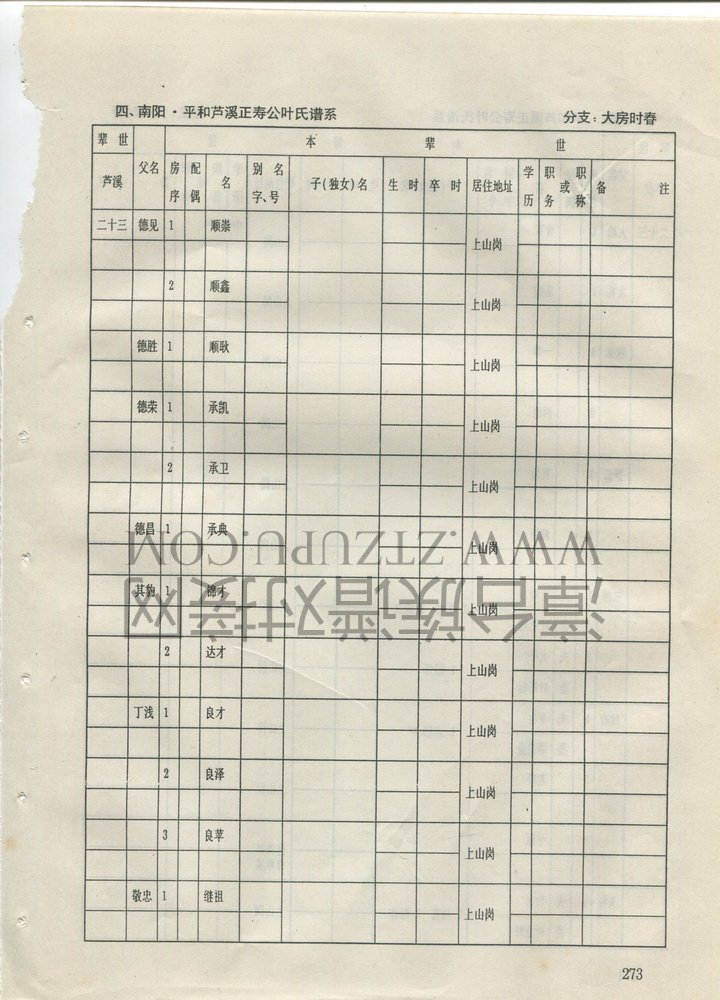 四、南阳·平和芦溪正寿公叶氏谱系 分支：大房时春
辈世 父名 本辈世
芦溪 房序 配偶 名 别名字、号 子(独女)名 生时 卒时 居住地址 学历 职务或职称 备注
二十三 德见 1 顺崇 上山岗
2 顺鑫 上山岗
德胜 1 顺耿 上山岗
德荣 1 承凯 上山岗
2 承卫 上山岗
德昌 1 承典 上山岗
WWW.ZTZUPU.COM
其豹 1 锦才 上山岗
漳台族谱对接网
2 达才 上山岗
丁浅 1 良才 上山岗
2 良泽 上山岗
3 良苹 上山岗
敬忠 1 继祖 上山岗
273